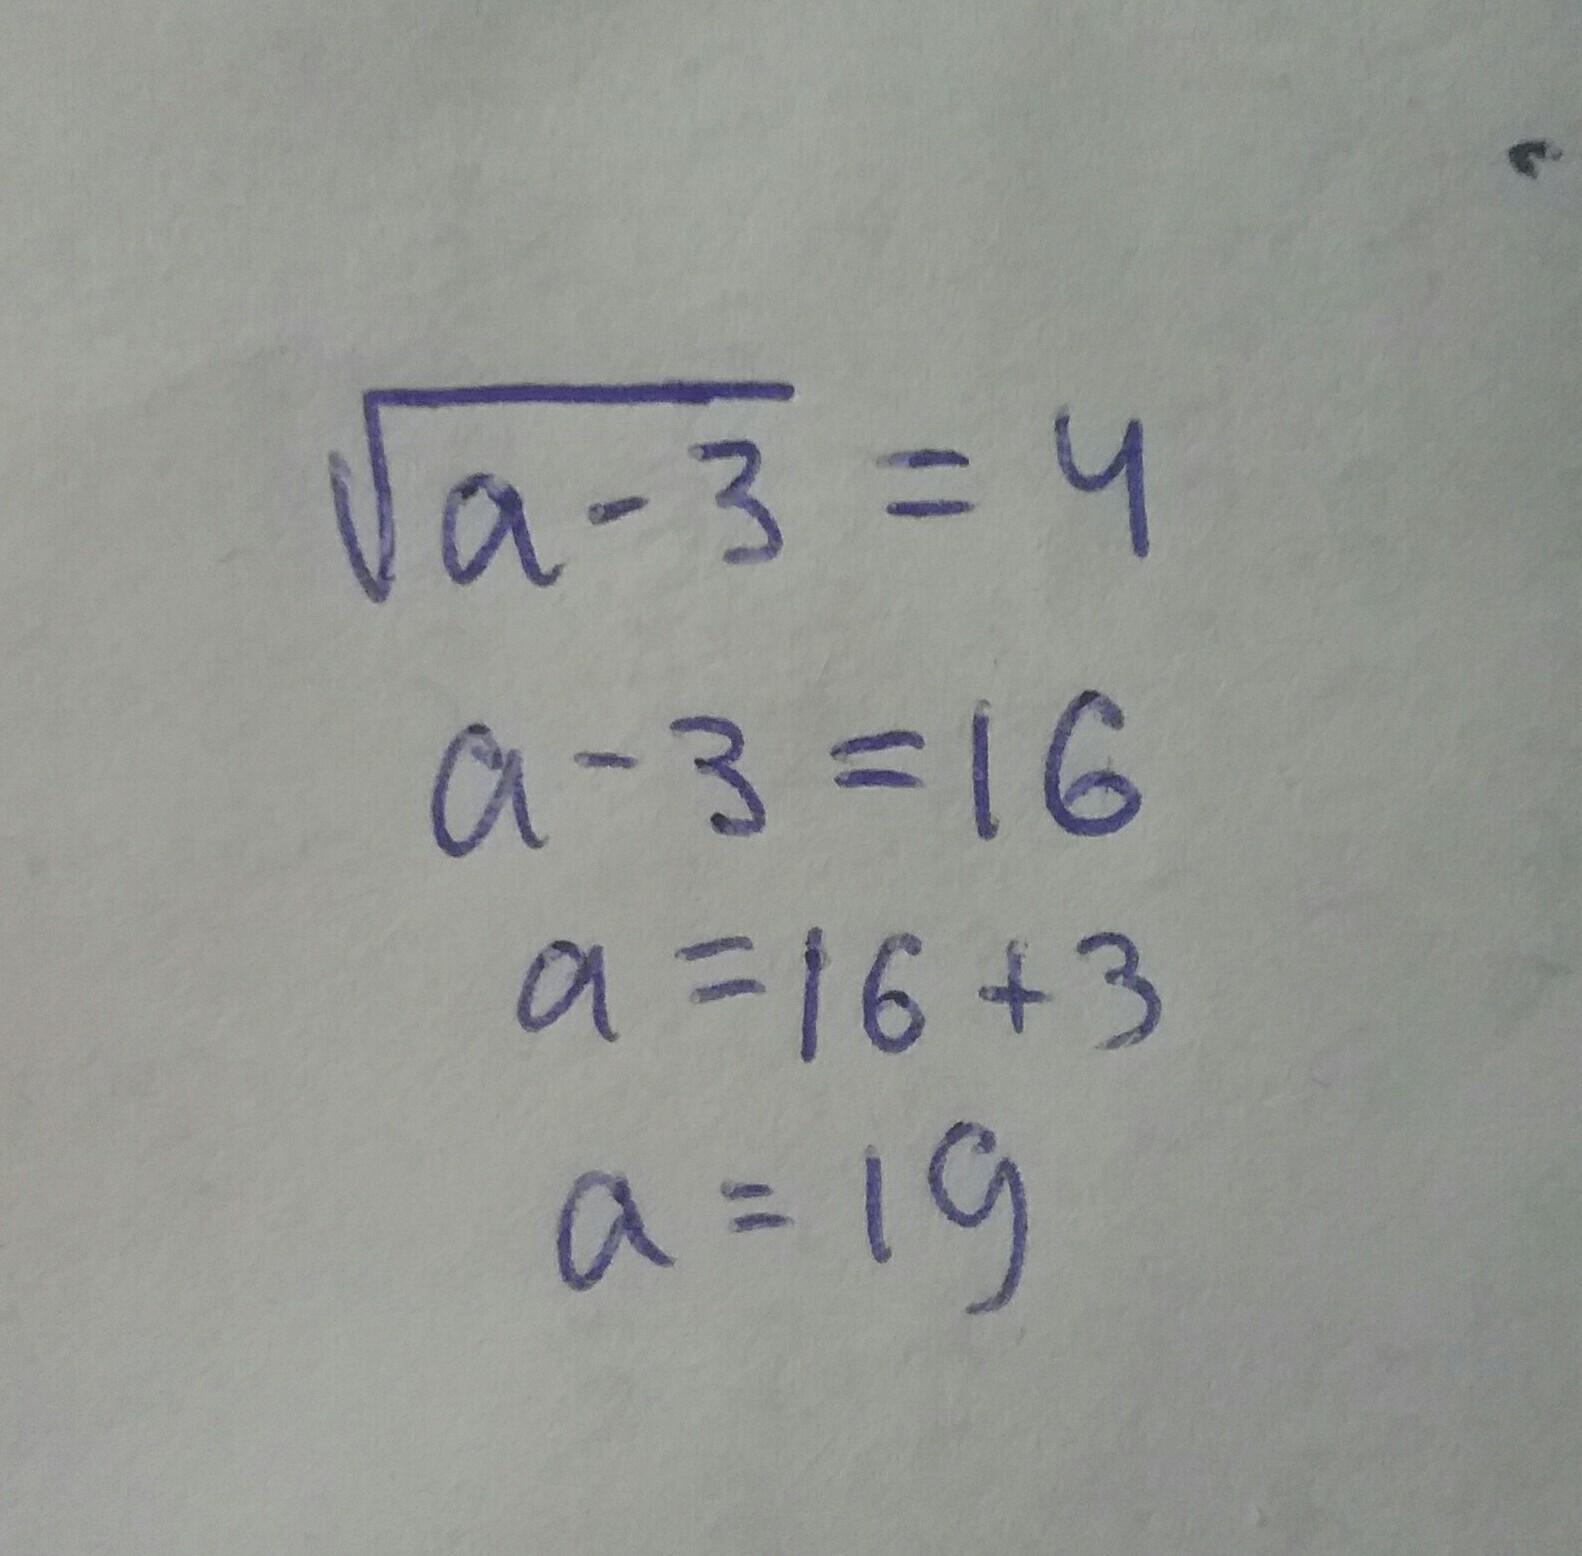 √a-3 = 4
a-3 = 16
a = 16 + 3
a = 19